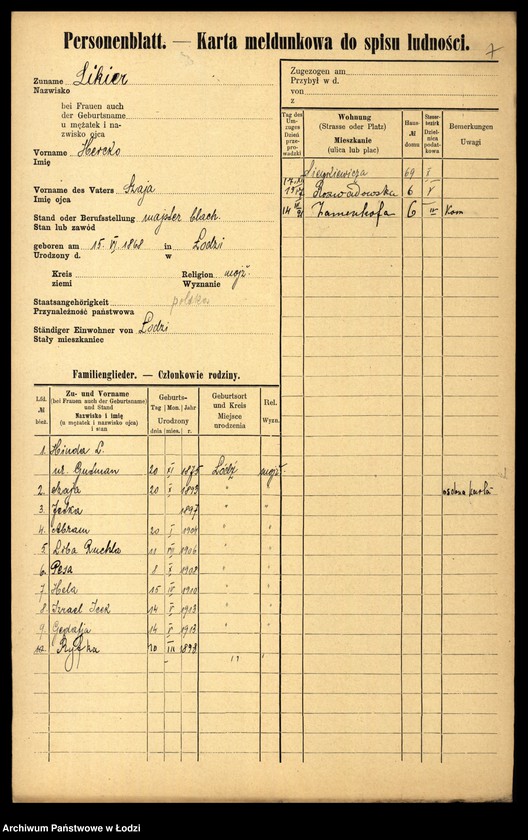 Personenblatt. — Karta meldunkowa do spisu ludności.
7
Zuname Likier
Nazwisko
bei Frauen auch
der Geburtsname
u mężatek i na-
zwisko ojca
Vorname Hercko
Imię
Vorname des Vaters Szaja
Imię ojca
Stand oder Berufsstellung majster blach.
Stan lub zawód
geboren am 15. VI. 1868 in Łodzi
Urodzony d. w
Kreis Religion mojż.
ziemi Wyznanie
Staatsangehörigkeit polska
Przynależność państwowa
Ständiger Einwohner von Łodzi
Stały mieszkaniec
Zugezogen am
Przybył w d.
von
z
Tag des Um-zuges Dzień prze-prowadzki
Wohnung (Strasse oder Platz) Mieszkanie (ulica lub plac)
Haus- № domu
Steuer-bezirk Dziel-nica podat-kowa
Bemerkungen Uwagi
Sienkiewicza 69 X
1917 Rozwadowska 6 V
14 VI 21 Zamenhofa 6 IV Kom
Familienglieder. — Członkowie rodziny.
Lfd. № bież.
Zu- und Vorname (bei Frauen auch der Geburtsname) und Stand Nazwisko i imię (u mężatek, nazwisko ojca) i stan
Geburts- Tag Mon. Jahr Urodzony dnia mies. r.
Geburtsort und Kreis Miejsce urodzenia
Rel. Wyzn.
1. Hinda L.
ur. Gutman 20 XI 1875 Łódź mojż.
2. Szaja 20 X 1893 " " osobna karta
3. 1897 " "
4. Abram 20 I 1904 " "
5. Liba Ruchla 11 VII 1906 " "
6. Pesa 8 X 1908 " "
7. Hela 15 IV 1910 " "
8. Izrael Icek 14 V 1913 " "
9. Gedalja 14 V 1913 " "
10. Ryfka 20 III 1898 " "
Archiwum Państwowe w Łodzi